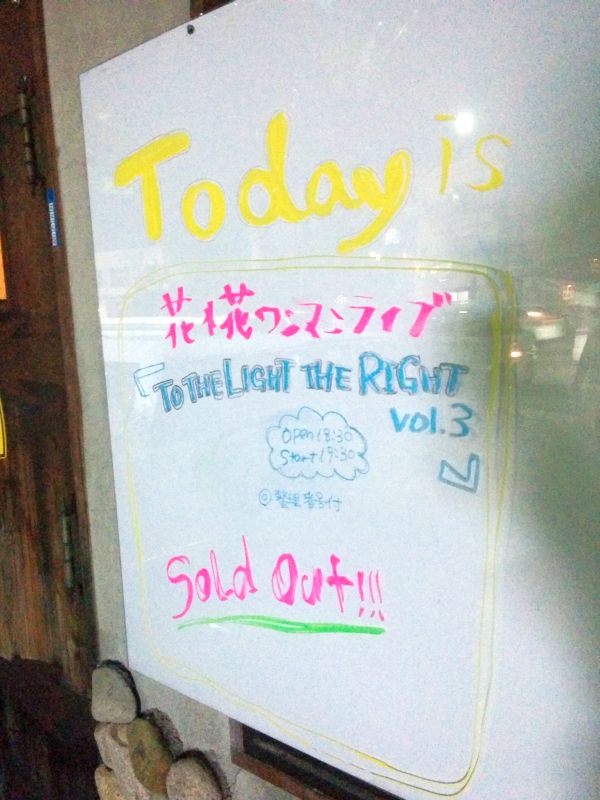 Today is
花*花ワンマンライブ
「TO THE LIGHT THE RIGHT
vol.3」
Open 18:30
Start 19:30
◎整理番号付
Sold Out!!!